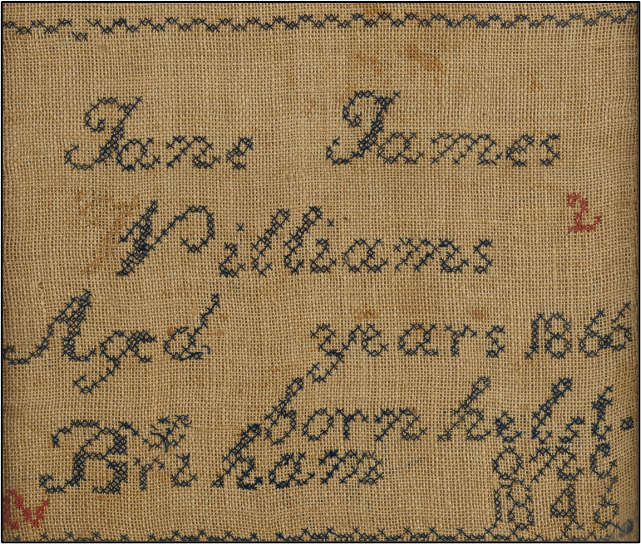 Jane James
Williams
2
Aged years 1866
born helst.
Bri ham one
184